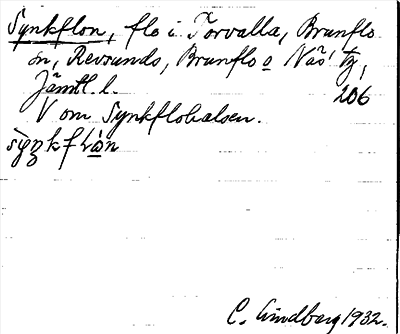 Synkflon, flo i Torvalla, Brunflo
sn, Revsunds, Brunflo o Näs' tg,
Jämtl. l. 206
V om Synkflohalsen.
sỳŋkflòn
C. Lindberg 1932.